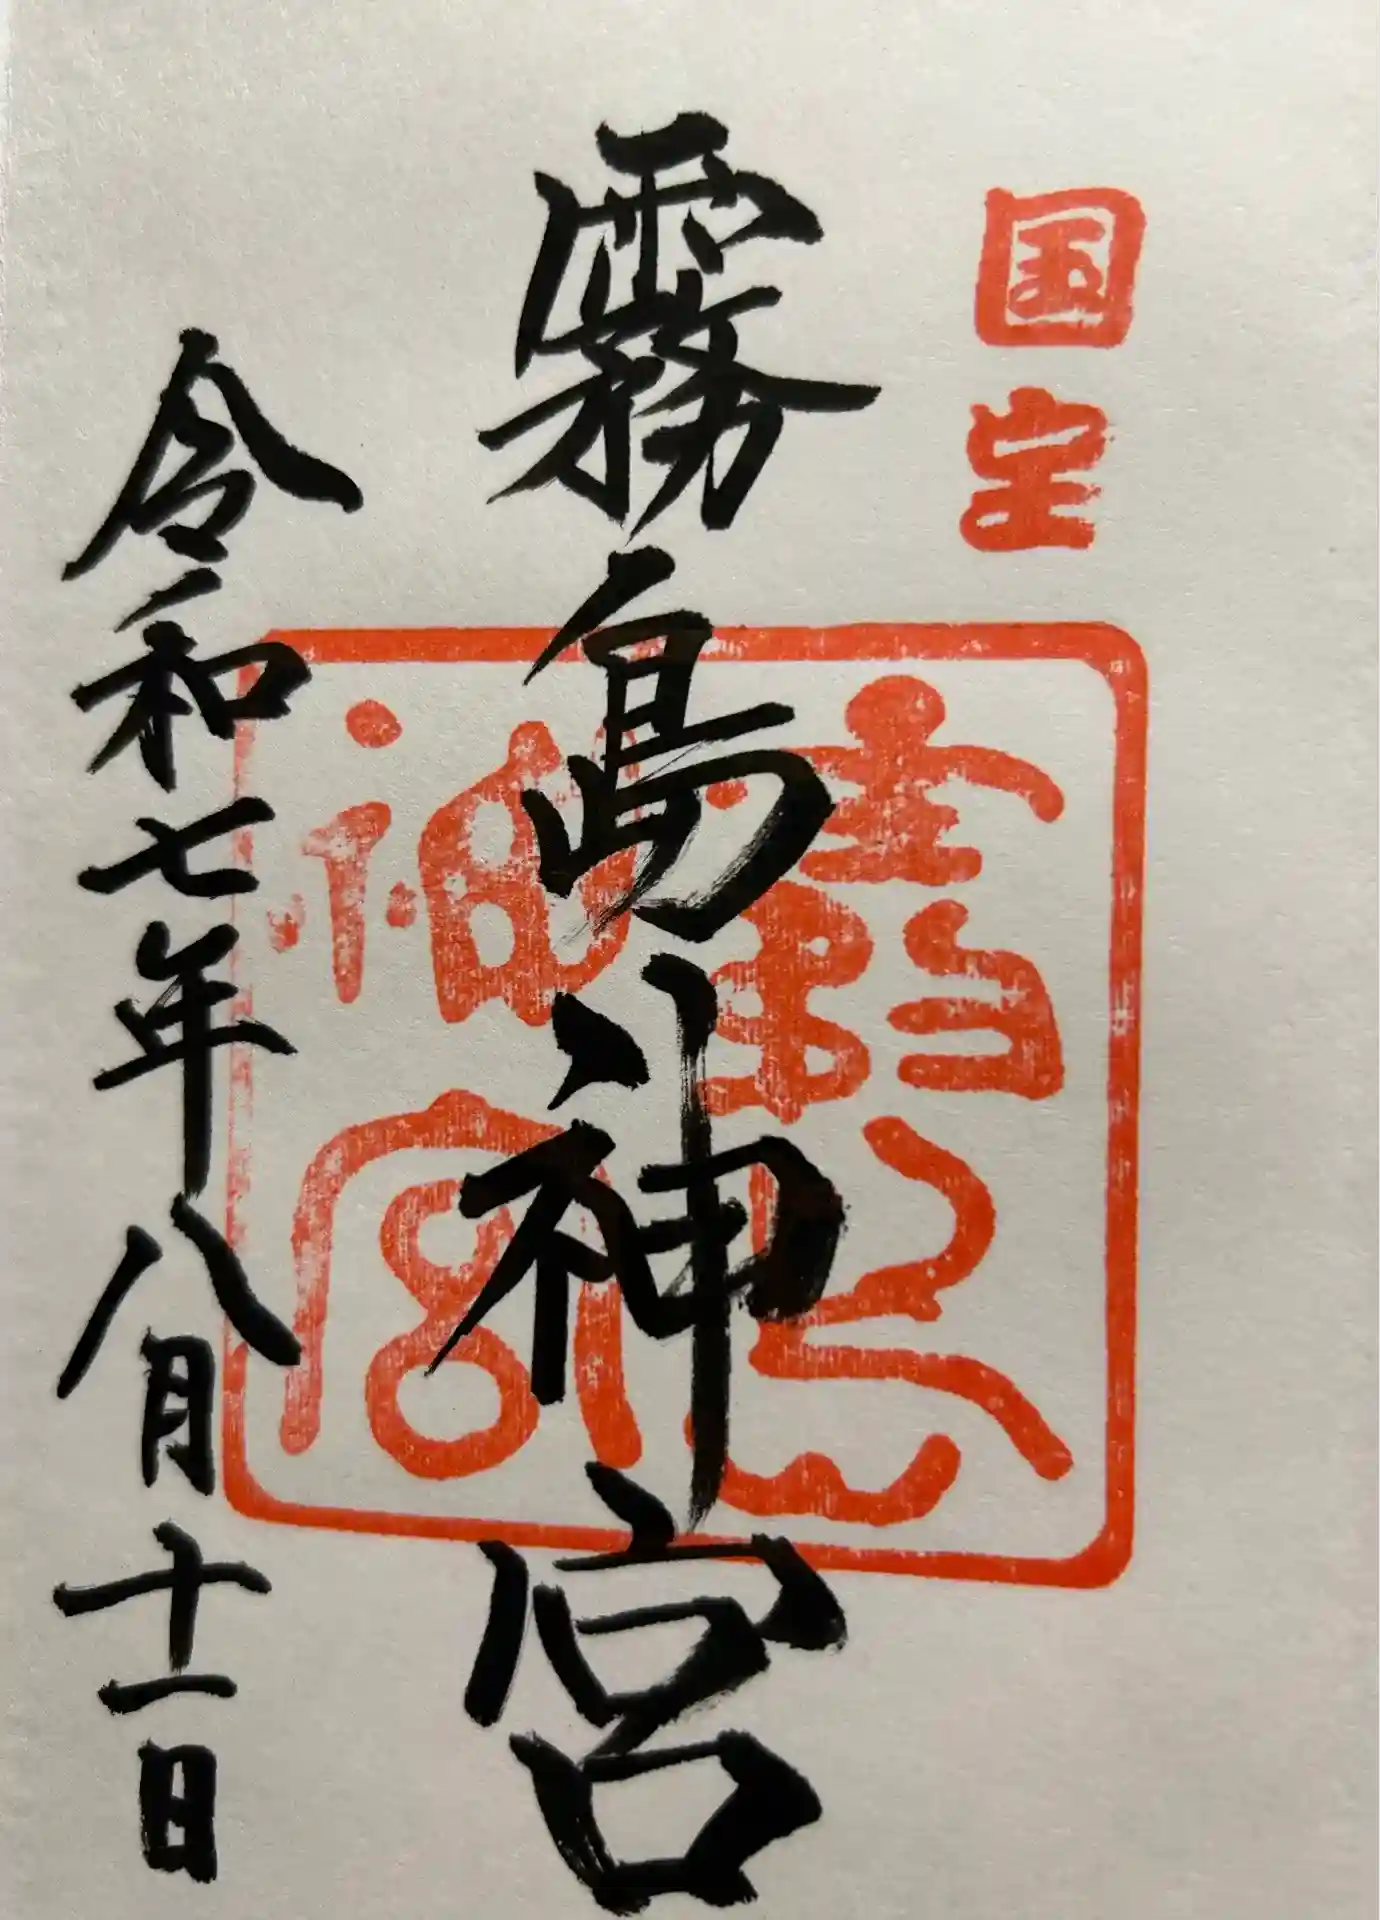 国宝
霧島神宮
霧島神宮
令和七年八月十一日